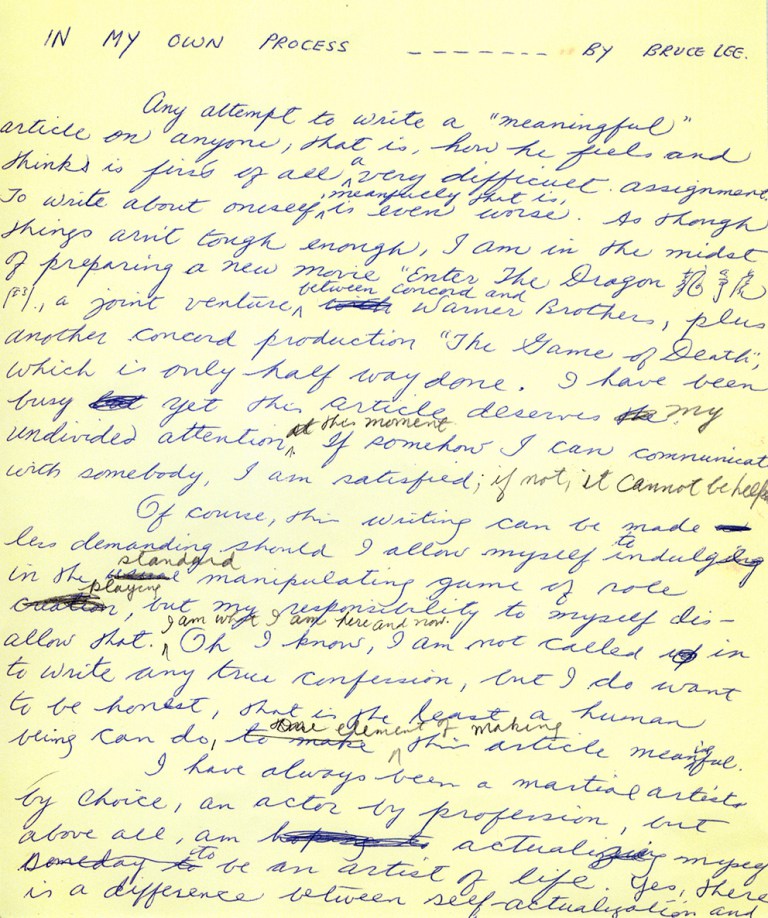 IN MY OWN PROCESS ------- BY BRUCE LEE.
Any attempt to write a "meaningful"
article on anyone, that is, how he feels and
thinks is first of all a very difficult assignment.
To write about oneself, meanfully that is, is even worse. As though
things arn't tough enough, I am in the midst
of preparing a new movie "Enter The Dragon
, a joint venture between concord and Warner Brothers, plus
another concord production "The Game of Death",
which is only half way done. I have been
busy yet this article deserves my
undivided attention at this moment. If somehow I can communicat
with somebody, I am satisfied; if not, it cannot be help
Of course, this writing can be made
less demanding should I allow myself to indulge
in the standard manipulating game of role
playing, but my responsibility to myself dis-
allow that. I am what I am here and now. Oh I know, I am not called in
to write any true confession, but I do want
to be honest, that is the least a human
being can do, element of making this article meaningful.
I have always been a martial artist
by choice, an actor by profession, but
above all, am actualizing myself
to be an artist of life. Yes, there
is a difference between self-actualization and